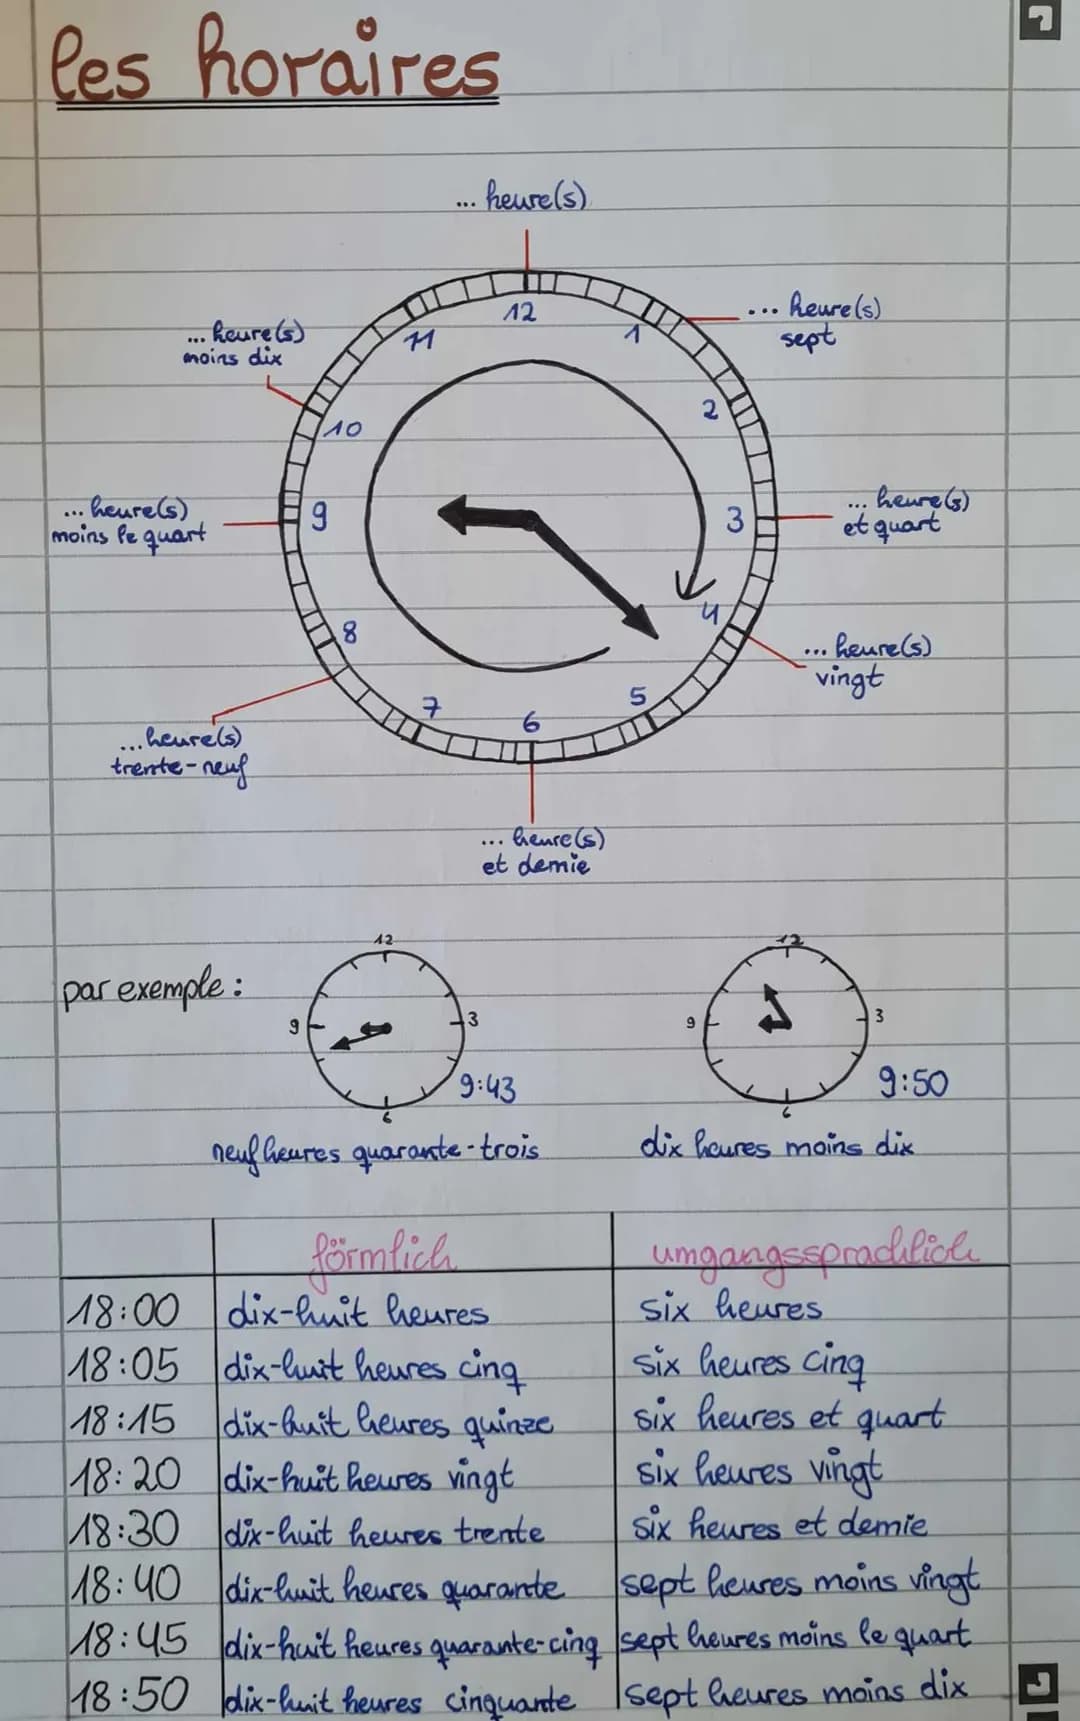 les horaires
... heure(s)
... heure(s)
sept
... heure(s)
moins dix
12
11
1
10
2
... heure(s)
moins le quart
9
3
... heure(s)
et quart
8
4
... heure(s)
vingt
7
6
5
... heure(s)
trente-neuf
... heure(s)
et demie
par exemple :
12
9
3
6
9:43
12
9
3
6
9:50
neuf heures quarante-trois
dix heures moins dix
förmlich umgangssprachlich
18:00 dix-huit heures six heures
18:05 dix-huit heures cinq six heures cinq
18:15 dix-huit heures quinze six heures et quart
18:20 dix-huit heures vingt six heures vingt
18:30 dix-huit heures trente six heures et demie
18:40 dix-huit heures quarante sept heures moins vingt
18:45 dix-huit heures quarante-cinq sept heures moins le quart
18:50 dix-huit heures cinquante sept heures moins dix